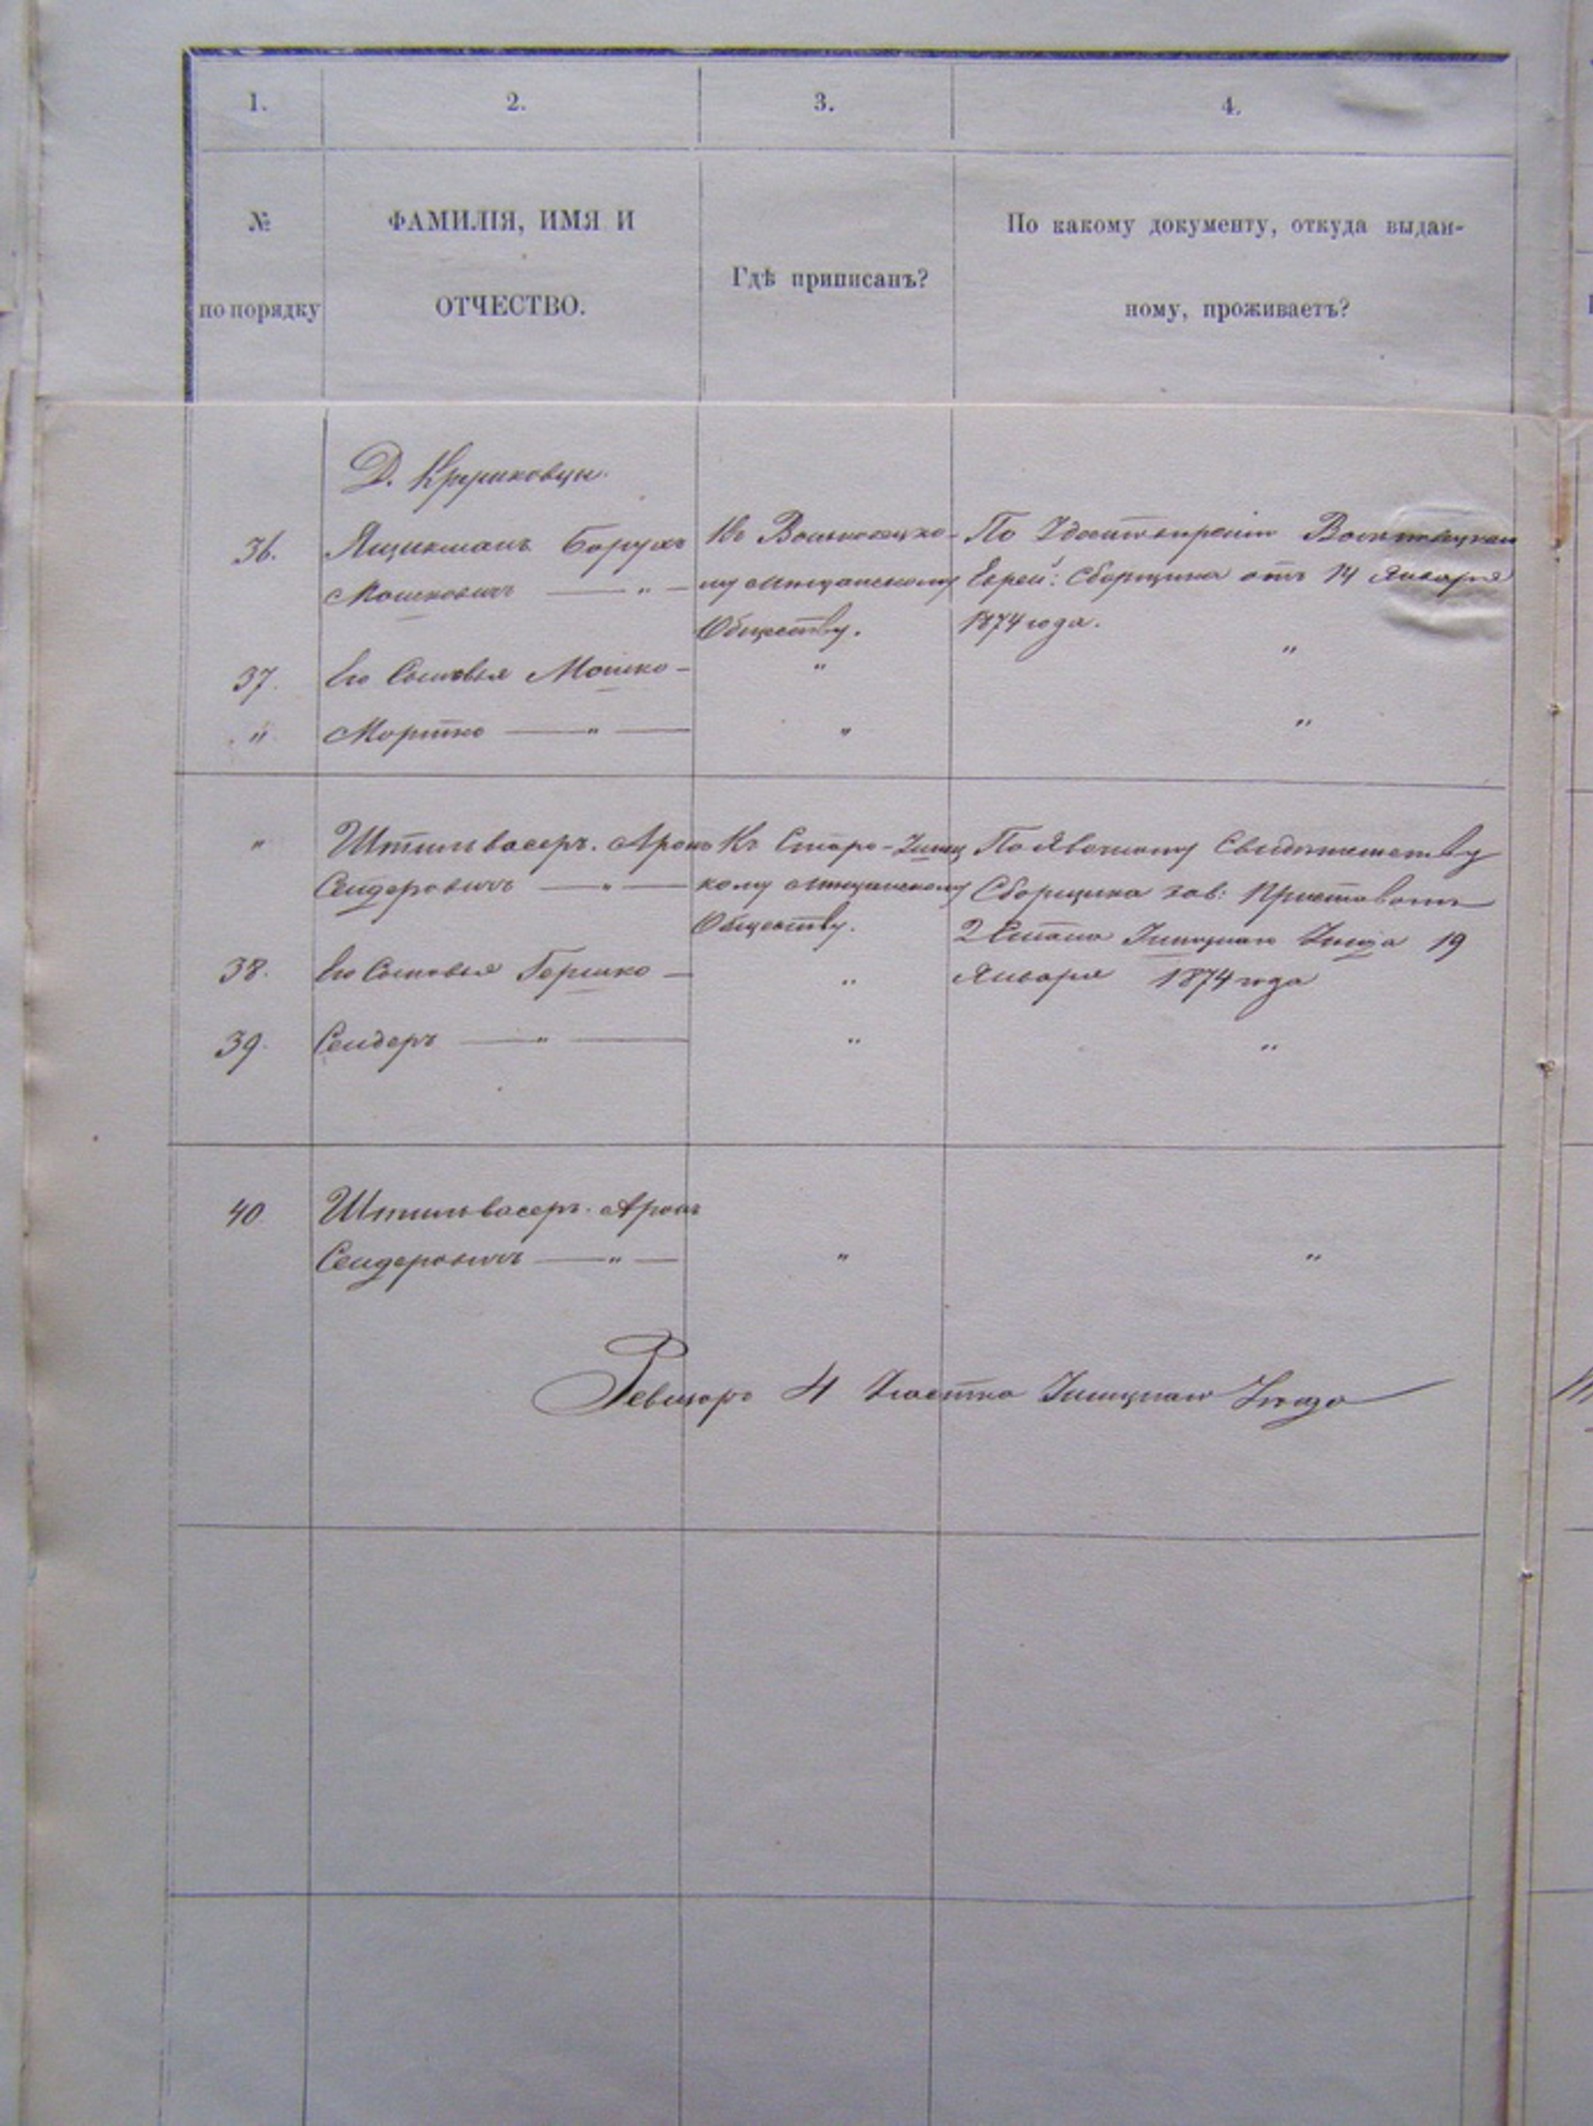 1. 2. 3. 4.
№
по порядку
ФАМИЛІЯ, ИМЯ И
ОТЧЕСТВО.
Гдѣ приписанъ?
По какому документу, откуда выдан-
ному, проживаетъ?
Д. Крушковцы.
36.
Ящикманъ Борухъ
Мошковичъ — " —
Къ
му мѣщанскому
Обществу.
По Удостовѣренію
Еврей: Сборщика отъ 14 Января
1874 года.
37. Его Сыновья Мошко — " "
" Мортко — " — " "
" Штильвасеръ. Аронъ
Сендеровичъ — " —
Къ Старо-Ушиц
кому мѣщанскому
Обществу.
По Явочному Свидѣтельству
Сборщика зав: Приставомъ
2 Стана Ушицкаго Уѣзда 19
Января 1874 года
38. Его Сыновья Гершко — "
39. Сендеръ — " — " "
40 Штильвасеръ. Аронъ
Сендеровичъ — " — " "
Ревизоръ 4 Участка Ушицкаго Уѣзда